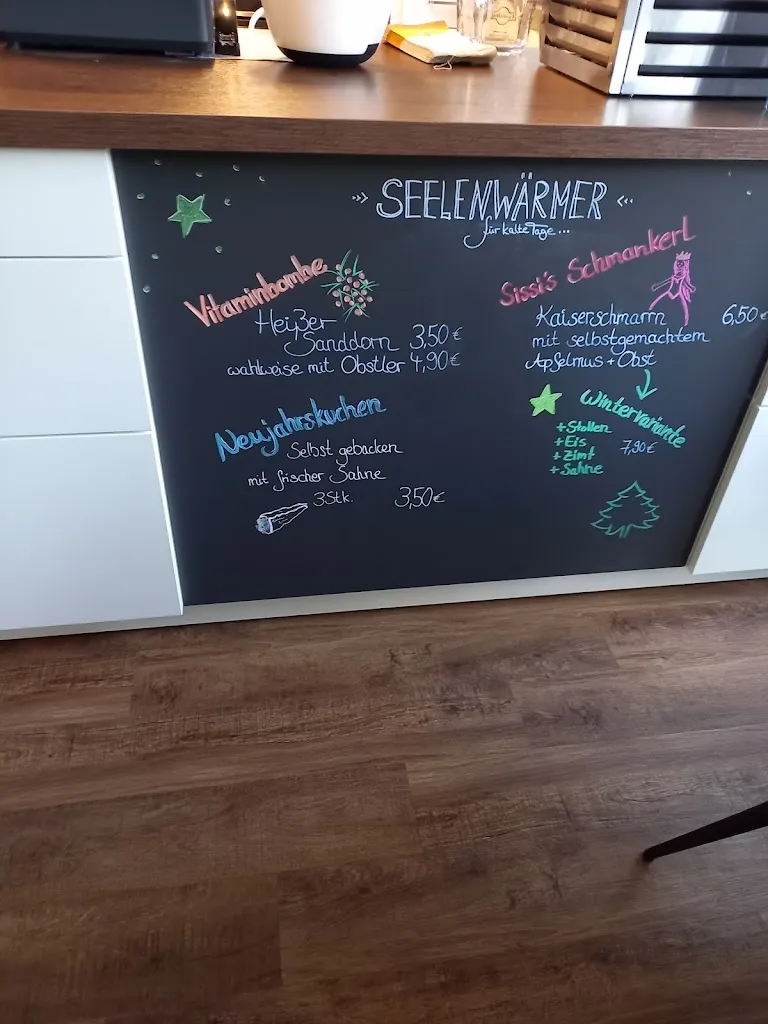 SEELENWÄRMER
für kalte Tage...
Vitaminbombe
Heißer
Sanddorn 3,50€
wahlweise mit Obstler 4,90€
Neujahrskuchen
Selbst gebacken
mit frischer Sahne
3Stk. 3,50€
Sissi's Schmankerl
Kaiserschmarrn 6,50€
mit selbstgemachtem
Apfelmus + Obst
Wintervariante
+Stollen
+Eis 7,90€
+Zimt
+Sahne